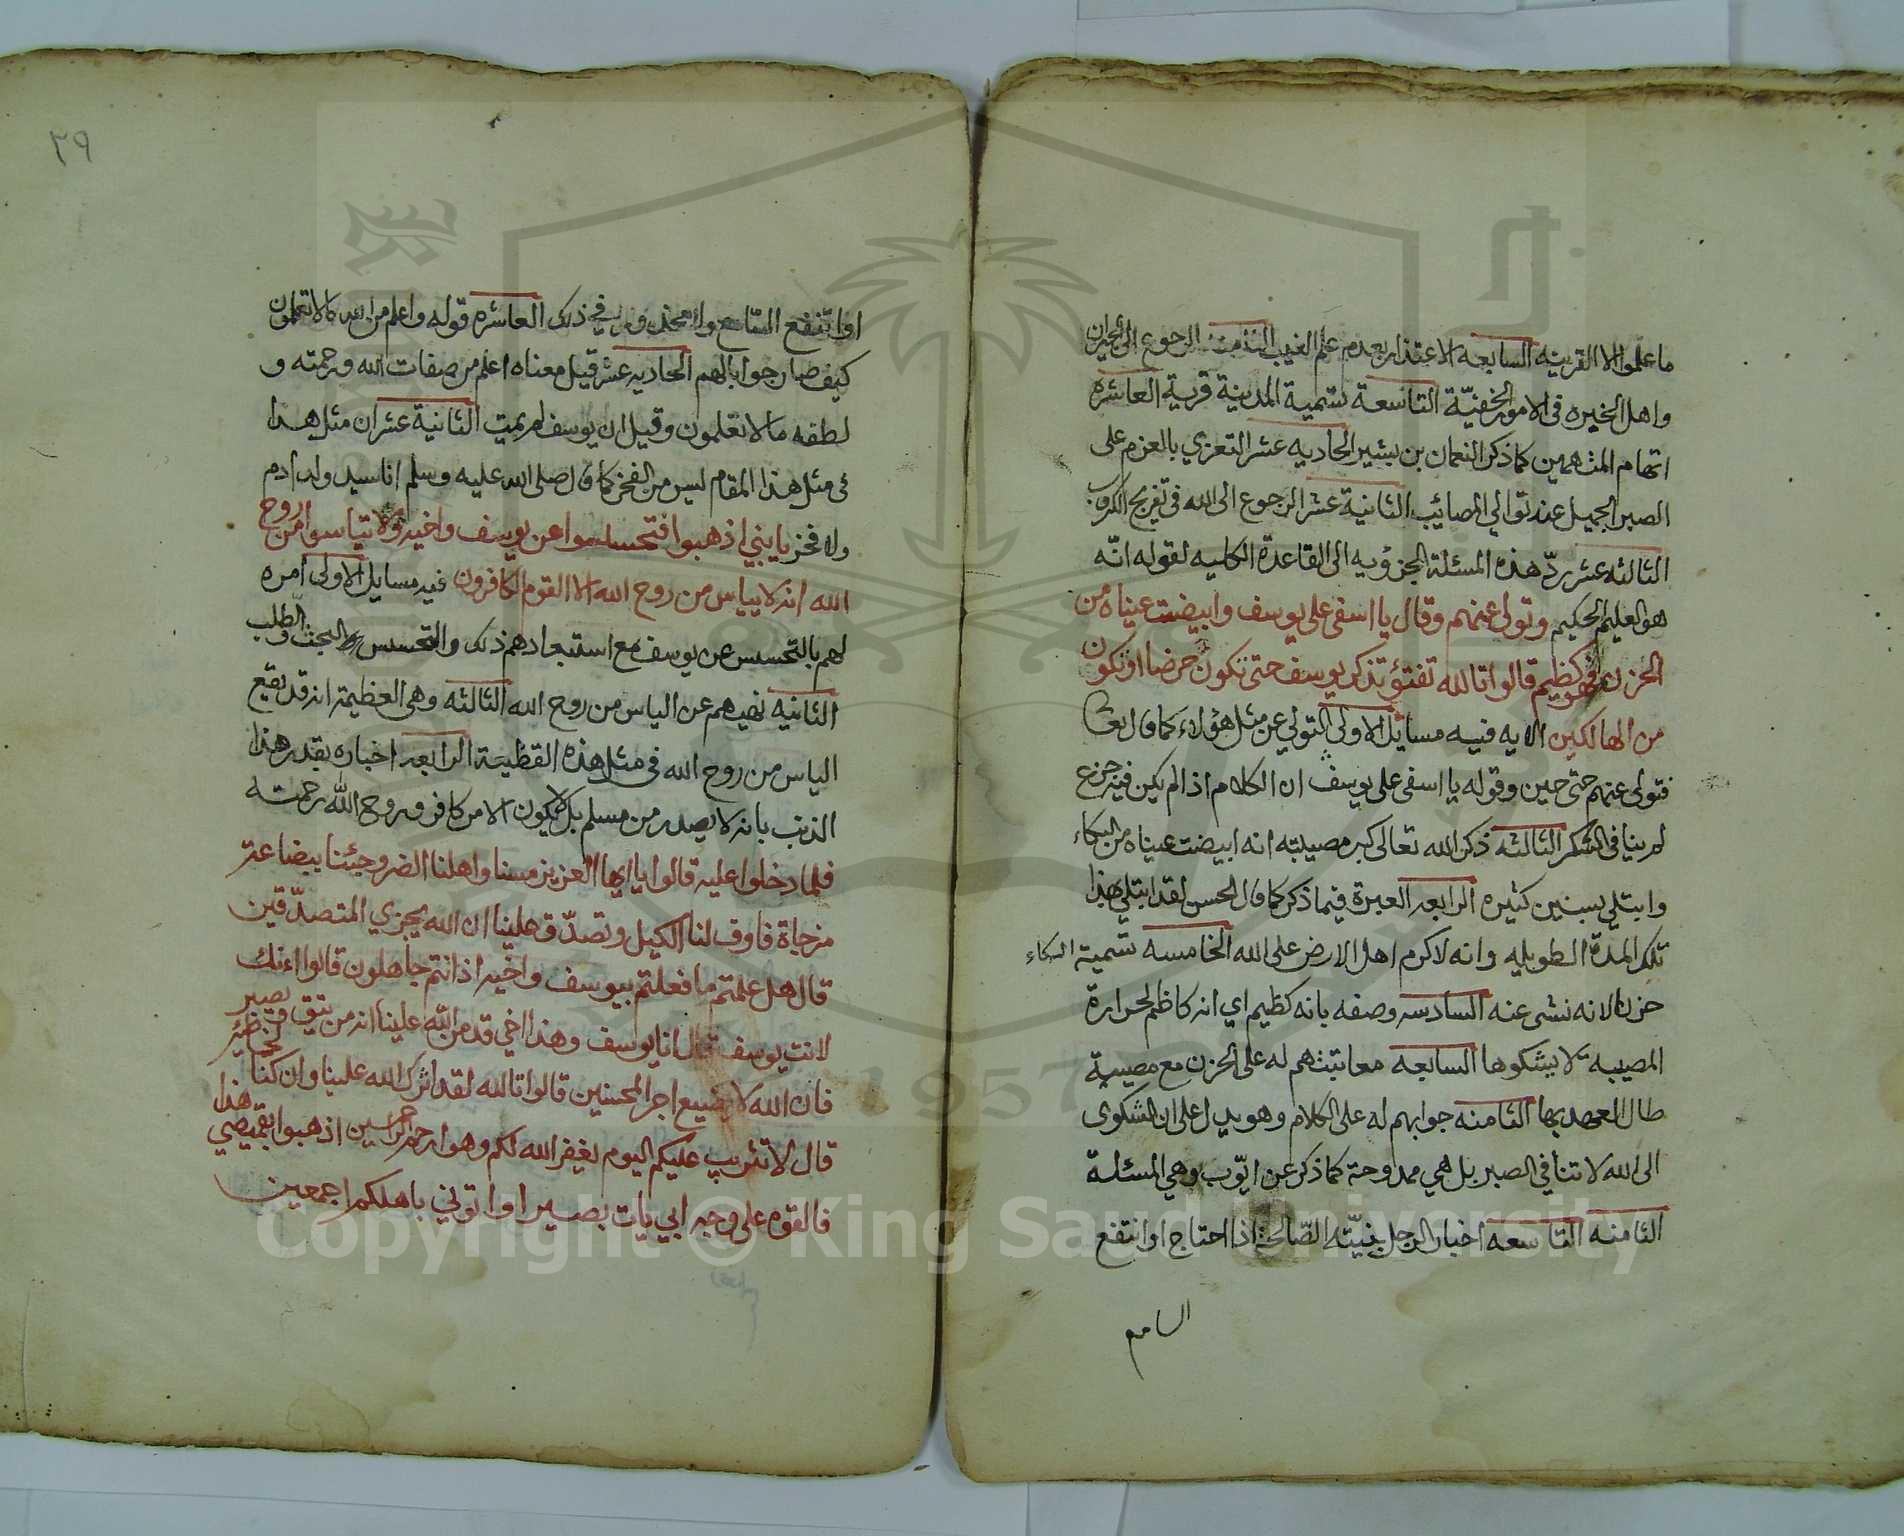 ما علموا الا القرينه السابعه الاعتذار بعدم علم الغيب الثامنه الرجوع الى الجيران
واهل الخبره فى الامور الخفيّة التاسعة تسمية المدينة قرية العاشره
اتهام المتهمين كما ذكر النعمان بن بشير الحاديه عشر التعزي بالعزم على
الصبر الجميل عند توالي المصائب الثانية عشر الرجوع الى الله فى تفريج الكرب
الثالثه عشر ردّ هذه المسئلة الجزؤيه الى القاعدة الكليه لقوله انّه
هو العليم الحكيم وتولى عنهم وقال يا اسفى على يوسف وابيضت عيناه من
الحزن فهو كظيم قالوا تالله تفتؤ تذكر يوسف حتى تكون حرضا او تكون
من الهالكين الايه فيه مسايل الاولى التولي عن مثل هؤلاء كما قال تعا
فتولى عنهم حتى حين وقوله يا اسفى على يوسف ان الكلام اذا لم يكن فيه جزع
لم ينافى الشكر الثالثه ذكر الله تعالى كبر مصيبته انه ابيضت عيناه من البكاء
وابتلي بسنين كثيره الرابعه العبرة فيما ذكر كما قال الحسن لقد ابتلي بهذا
تلك المدة الطويله وانه لاكرم اهل الارض على الله الخامسه تسمية البكاء
حزنا لانه نشى عنه السادسه وصفه بانه كظيم اي انه كاظم لحرارة
المصيبة لا يشكوها السابعه معاتبتهم له على الحزن مع مصيبة
طال العهد بها الثامنه جوابهم له على الكلام وهو يدل على ان الشكوى
الى الله لا تنافي الصبر بل هي ممدوحة كما ذكر عن ايّوب وهي المسئلة
الثامنه التاسعه اخبار الرجل بنيّته الصّالحة اذا احتاج او انتفع
السامع
٣٩
او انتفع السّامع ولا محذور في ذلك العاشره قوله واعلم من الله ما لا تعلمون
كيف صار جوابا لهم الحاديه عشر قيل معناه اعلم من صفات الله ورحمته و
لطفه ما لا تعلمون وقيل ان يوسف لم يمت الثانية عشر ان مثل هذا
فى مثل هذا المقام ليس من الفخر كما قال صلى الله عليه وسلم انا سيد ولد ادم
ولا فخر يا بني اذهبوا فتحسسوا من يوسف واخيه ولا تياسوا من روح
الله انه لا يياس من روح الله الا القوم الكافرون فيه مسايل الاولى امره
لهم بالتحسس عن يوسف مع استبعادهم ذلك والتحسس البحث والطلب
الثانيه نهيهم عن الياس من روح الله الثالثه وهى العظيمة انه قد يقع
الياس من روح الله فى مثل هذه القظيية الرابعه اخباره بقدر هذا
الذنب بانه لا يصدر من مسلم بل لا يكون الا من كافر وروح الله رحمته
فلما دخلوا عليه قالوا يا ايها العزيز مسنا واهلنا الضر وجئنا ببضاعة
مزجاة فاوف لنا الكيل وتصدّق علينا ان الله يجزي المتصدّقين
قال هل علمتم ما فعلتم بيوسف واخيه اذ انتم جاهلون قالوا اءنك
لانت يوسف قال انا يوسف وهذا اخي قد من الله علينا انه من يتق ويصبر
فان الله لا يضيع اجر المحسنين قالوا تالله لقد اثرك الله علينا وان كنا لخاطئين
قال لا تثريب عليكم اليوم يغفر الله لكم وهو ارحم الراحمين اذهبوا بقميصي هذا
فالقوه على وجه ابي يات بصيرا واتوني باهلكم اجمعين
1957
Copyright © King Saud University